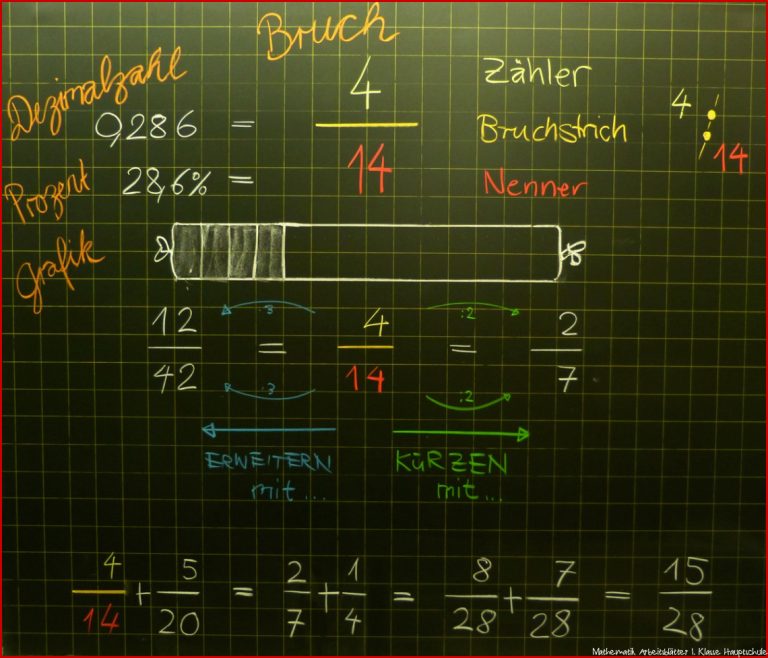 Bruch
Dezimalzahl
0,286 =
4
14
Zähler
Bruchstrich
Nenner
4 : 14
Prozent
28,6% =
Grafik
12
42
·3
=
4
14
:2
=
2
7
·3
:2
ERWEITERN
mit...
KÜRZEN
mit...
4/14 + 5/20 = 2/7 + 1/4 = 8/28 + 7/28 = 15/28
Mathematik Arbeitsblätter 1. Klasse Hauptschule